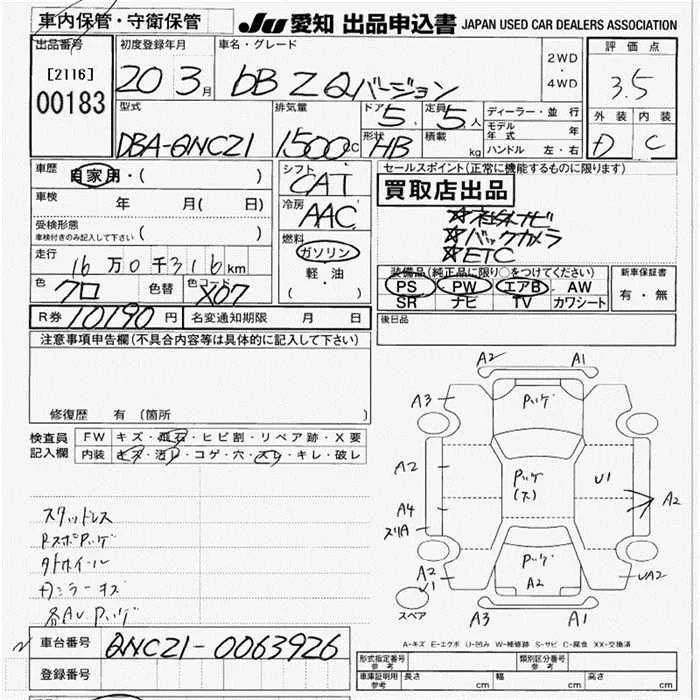 車内保管・守衛保管
JU 愛知 出品申込書 JAPAN USED CAR DEALERS ASSOCIATION
出品番号
[2116]
00183
初度登録年月
20 3月
車名・グレード
bB Z Qバージョン
2WD
・
4WD
評価点
3.5
外装 内装
D C
型式
DBA-QNCZ1
排気量
1500cc
ドア
5
定員
5人
形状
HB
積載
kg
ディーラー・並行
モデル年式 年
ハンドル 左・右
車歴
自家用・( )
車検
年 月( 日)
受検形態
車検付きのみ記入して下さい ( )
走行
16万0千316km
色
クロ
色替
色コード
X07
シフト
CAT
冷房
AAC
燃料
ガソリン
軽・油
( )
セールスポイント(正常に機能するものに限ります)
買取店出品
☆社外ナビ
☆バックカメラ
☆ETC
装備品(純正品に限り○をつけてください)
PS PW エアB AW
SR ナビ TV カワシート
新車保証書
有・無
R券 10190円
名変通知期限 月 日
後日品
注意事項申告欄(不具合内容等は具体的に記入して下さい)
修復歴 有 〔箇所 〕
検査員
記入欄
FW キズ・飛石・ヒビ割・リペア跡・X要
内装 キズ・汚レ・コゲ・穴・スレ・キレ・破レ
スタッドレス
タホイール
車台番号
QNCZ1-0063926
登録番号
A2 A1
A3
A2
A4
スリA
A2
U1
A2
A2
UA2
A3 A1
スペア
A-キズ E-エクボ U-凹み W-補修跡 S-サビ C-腐食 XX-交換済
形式指定番号
参考
類別区分番号
参考
車庫証明用
参考
長さ cm 幅 cm 高さ cm